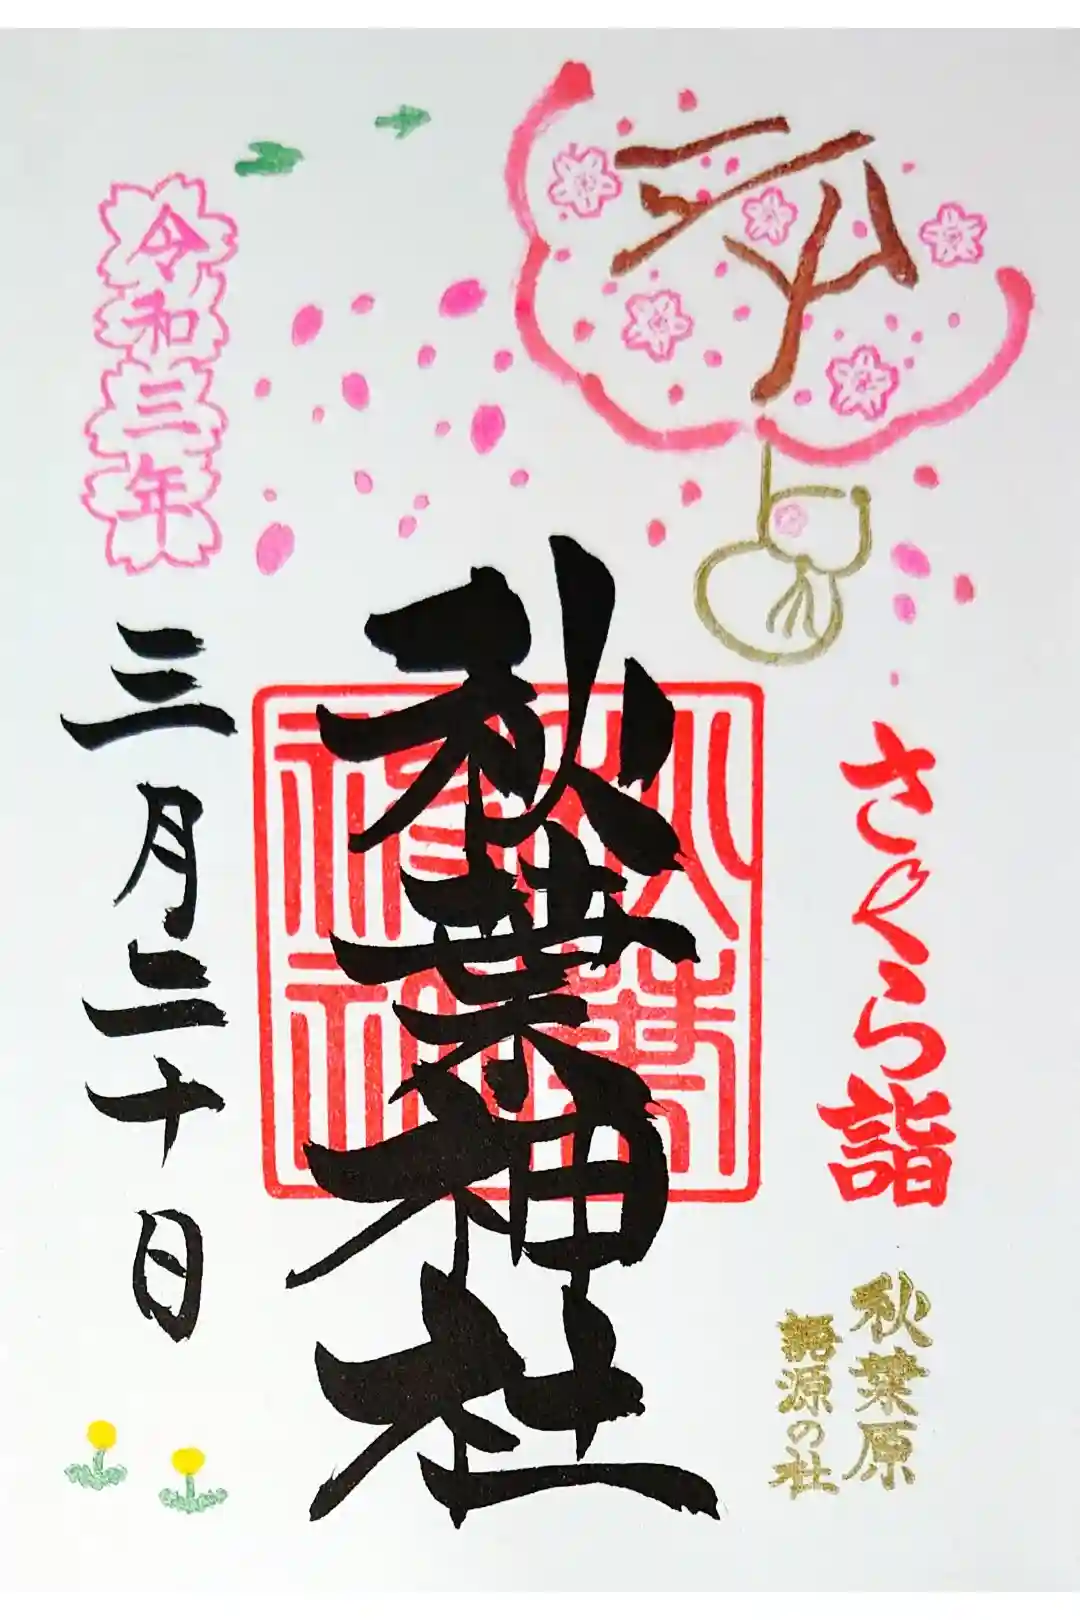 さくら詣
秋葉原
語源の社
秋葉神社
令和三年
三月二十日